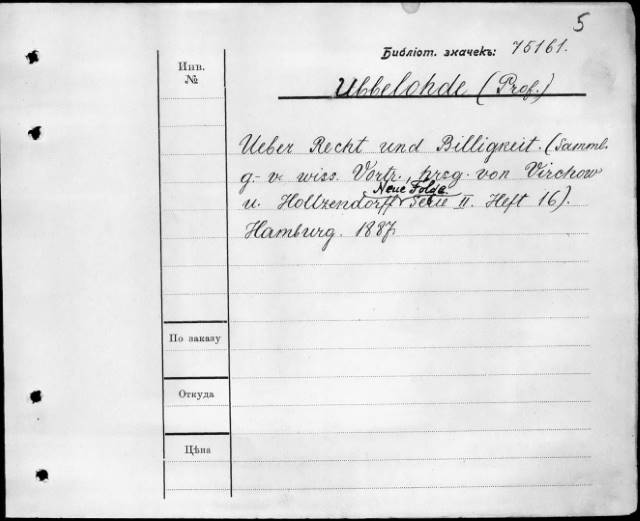 5
Библіот. значекъ: 75161.
Инв.
№
Ubbelohde (Prof.)
Ueber Recht und Billigkeit. (Samml.
g. v. wiss. Vortr., hrsg. von Virchow
Neue Folge
u. Holtzendorff Serie II. Heft 16).
Hamburg. 1887.
По заказу
Откуда
Цѣна